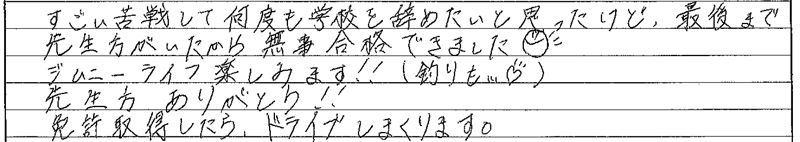 すごい苦戦して何度も学校を辞めたいと思ったけど、最後まで
先生方がいたから無事合格できました
ジムニーライフ楽しみます!!(釣りも…)
先生方 ありがとう!!
免許取得したら、ドライブしまくります。